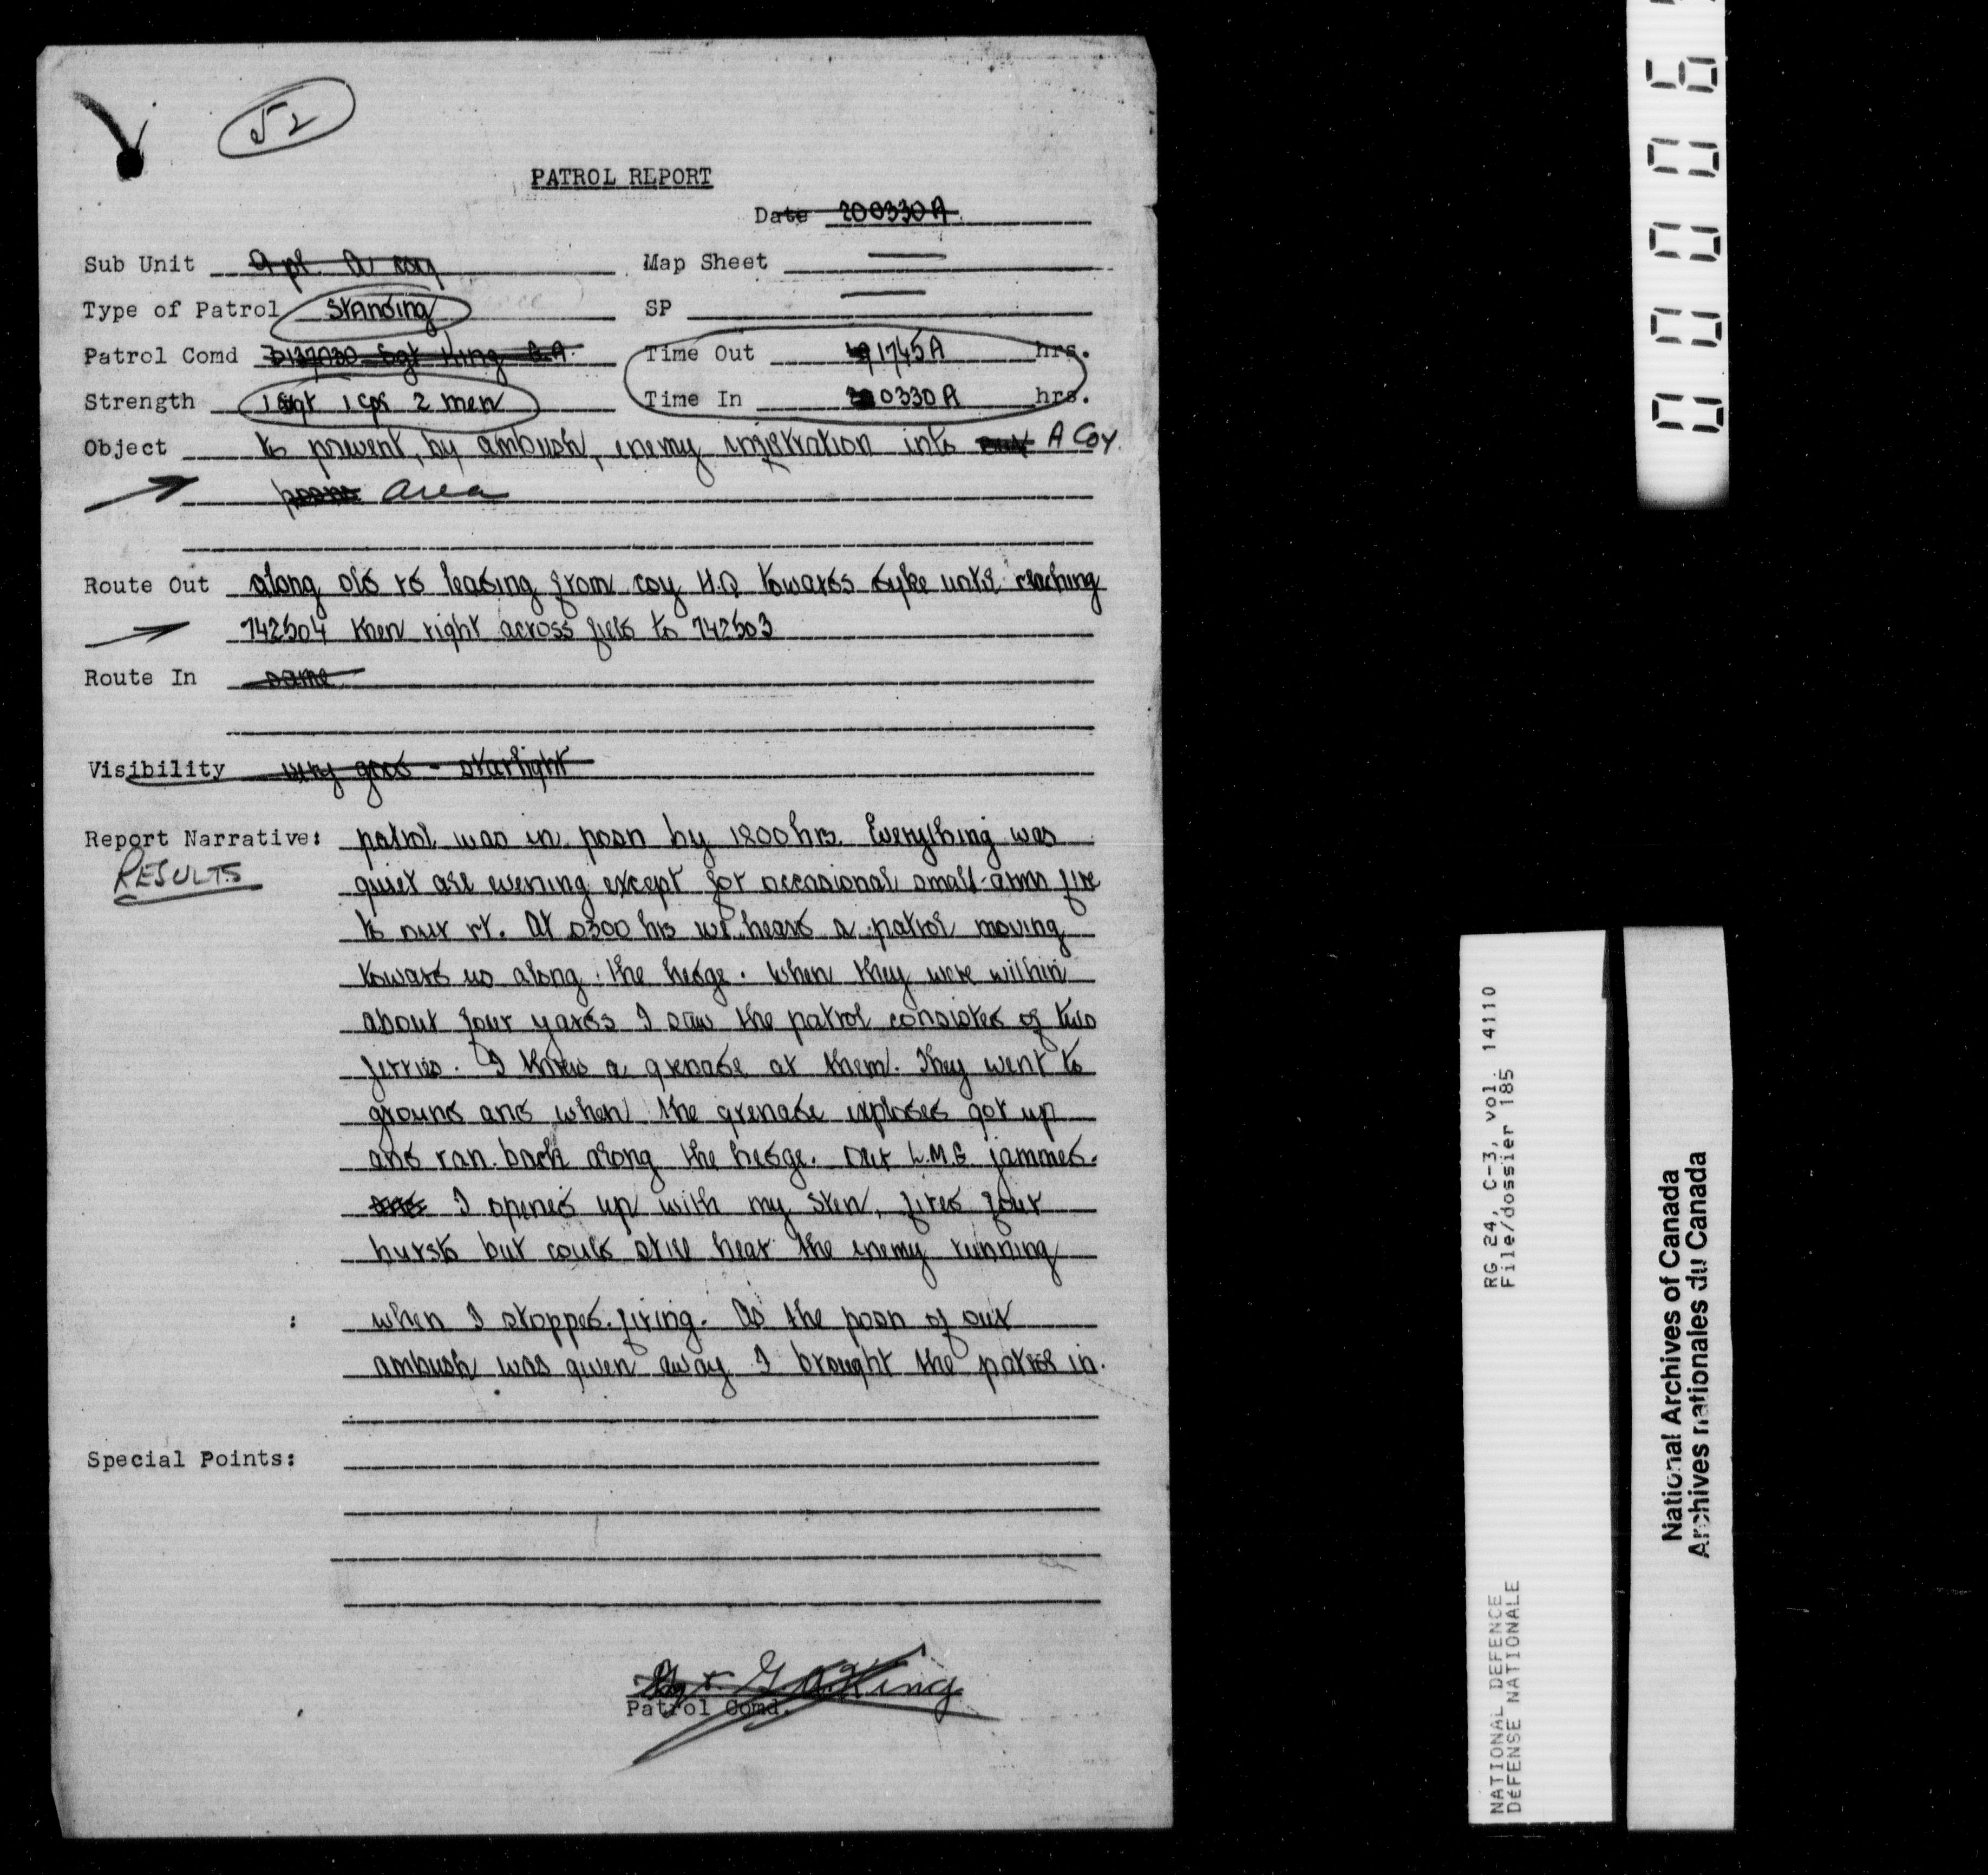 52
PATROL REPORT
Date 200330A
Sub Unit 9 pl. A coy Map Sheet —
Type of Patrol Standing SP —
Patrol Comd Sgt King G.A. Time Out 191745A hrs.
Strength 1 Sgt 1 cpl 2 men Time In 200330A hrs.
Object to prevent, by ambush, enemy infiltration into our A Coy.
posns area
Route Out along old rd leading from coy H.Q towards dyke until reaching
742504 then right across field to 742503
Route In same
Visibility very good - starlight
Report Narrative: patrol was in posn by 1800 hrs. Everything was
RESULTS
quiet all evening except for occasional small-arms fire
to our rt. At 0300 hrs we heard a patrol moving
toward us along the hedge. When they were within
about four yards I saw the patrol consisted of two
jerries. I threw a grenade at them. They went to
ground and when the grenade exploded got up
and ran back along the hedge. Our L.M.G. jammed.
and I opened up with my Sten, fired four
bursts but could still hear the enemy running
when I stopped firing. As the posn of our
ambush was given away I brought the patrol in.
Special Points:
Sgt. G A King
Patrol Comd.
RG 24, C-3, vol. 14110
File/dossier 185
NATIONAL DEFENCE
DÉFENSE NATIONALE
National Archives of Canada
Archives nationales du Canada